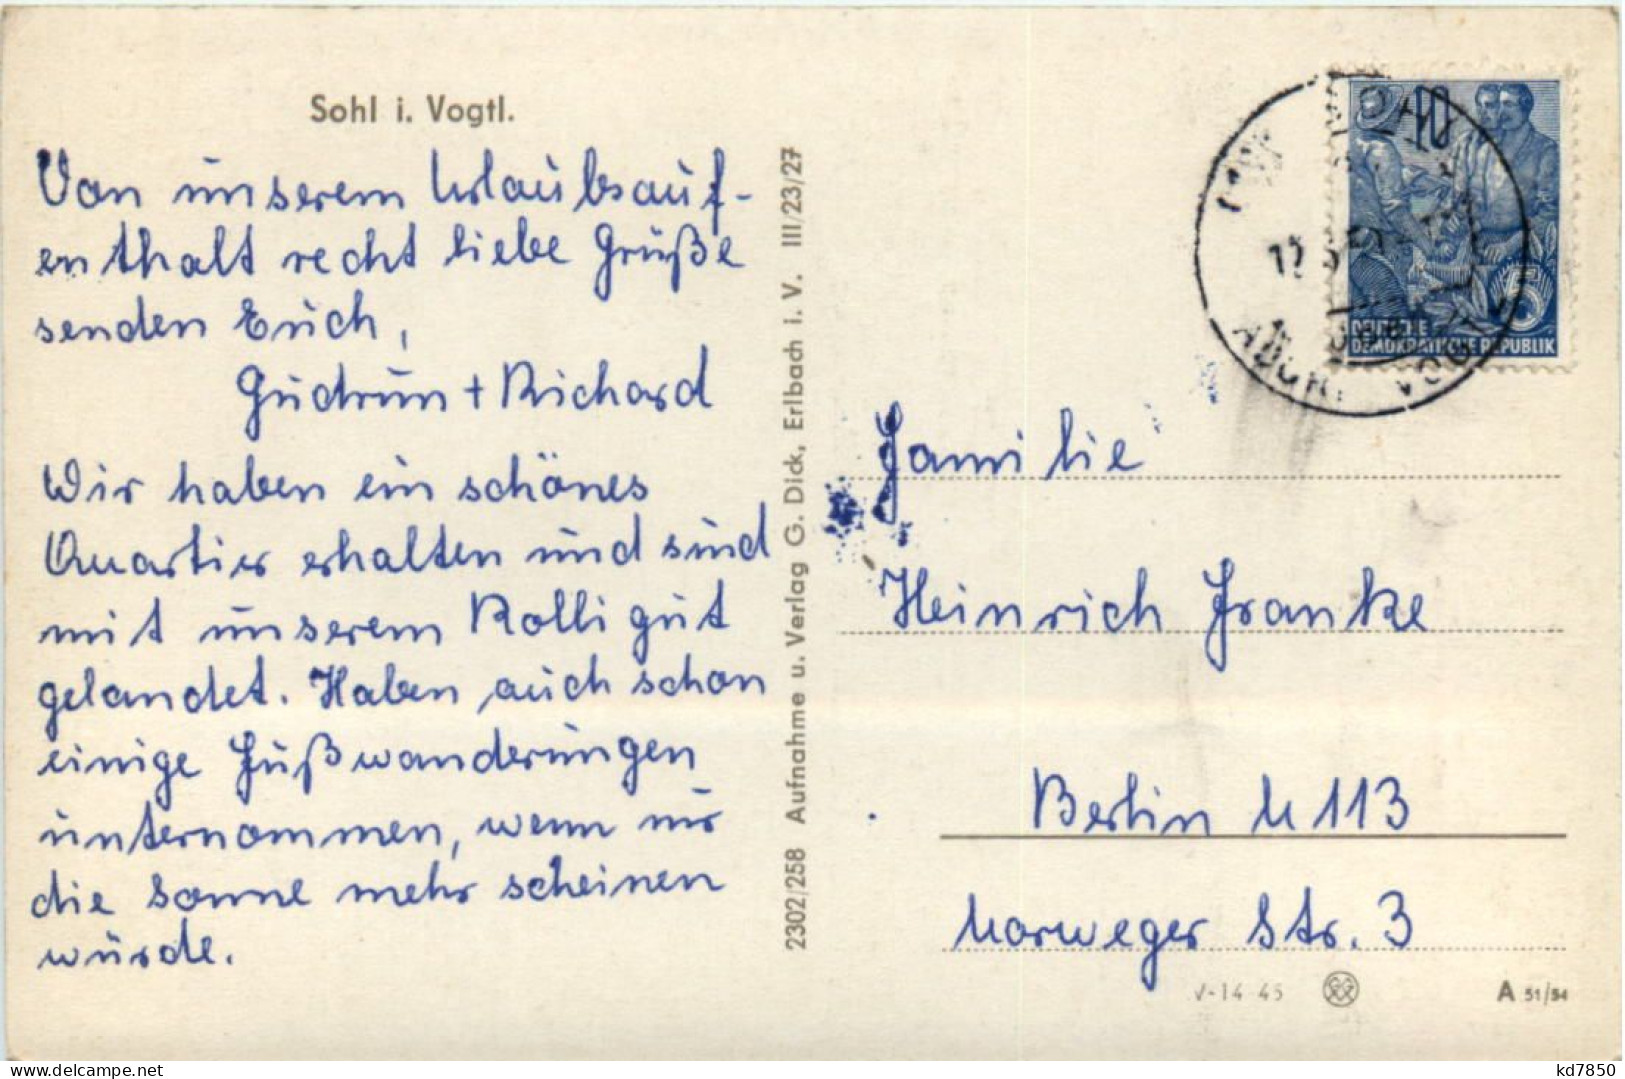 Sohl i. Vogtl.
Von unserem Urlaubsauf-
enthalt recht liebe Grüße
senden Euch,
Gudrun + Richard
Wir haben ein schönes
Quartier erhalten und sind
mit unserem Rolli gut
gelandet. Haben auch schon
einige Fußwanderungen
unternommen, wenn nur
die Sonne mehr scheinen
würde.
2302/258 Aufnahme u. Verlag G. Dick, Erlbach i. V. III/23/27
10
DEUTSCHE
DEMOKRATISCHE REPUBLIK
Familie
Heinrich Franke
Berlin N 113
Norweger Str. 3
V-14-45
A 51/54
kd7850